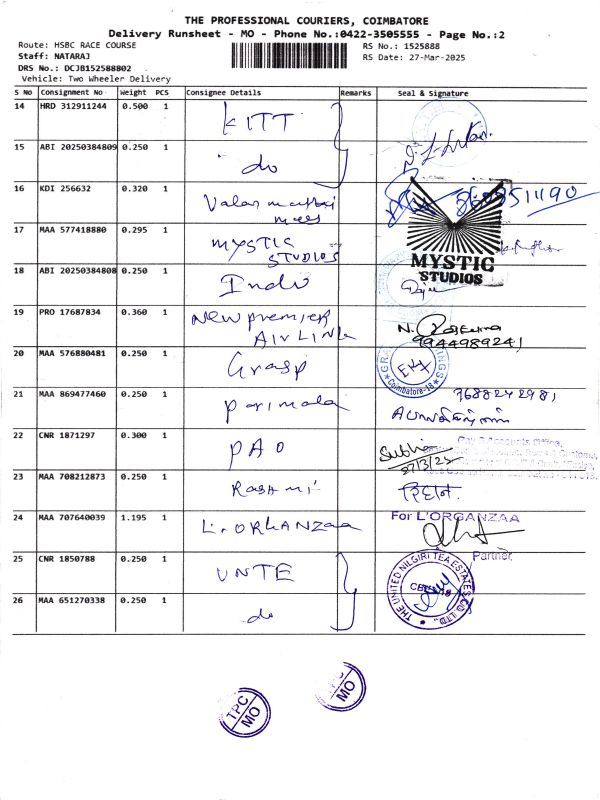 THE PROFESSIONAL COURIERS, COIMBATORE
Delivery Runsheet - MO - Phone No.:0422-3505555 - Page No.:2
Route: HSBC RACE COURSE
RS No.: 1525888
Staff: NATARAJ
RS Date: 27-Mar-2025
DRS No.: DCJB152588802
Vehicle: Two Wheeler Delivery
S No Consignment No Weight PCS Consignee Details Remarks Seal & Signature
14 HRD 312911244 0.500 1 KITT
15 ABI 20250384809 0.250 1 do
16 KDI 256632 0.320 1
17 MAA 577418880 0.295 1 MYSTIC STUDIOS
MYSTIC
STUDIOS
18 ABI 20250384808 0.250 1 Indu
19 PRO 17687834 0.360 1 New premier
AIRLINK
9944989241
20 MAA 576880481 0.250 1 Grasp
Coimbatore-18
21 MAA 869477460 0.250 1 parimala
22 CNR 1871297 0.300 1 PAO
Pay & Accounts Office,
27/3/25
23 MAA 708212873 0.250 1 Rashmi
24 MAA 707640039 1.195 1 L.ORGANZAA
For L'ORGANZAA
Partner
25 CNR 1850788 0.250 1 UNTE
THE UNITED NILGIRI TEA ESTATES CO. LTD.
26 MAA 651270338 0.250 1 do
TPC
MO
TPC
MO